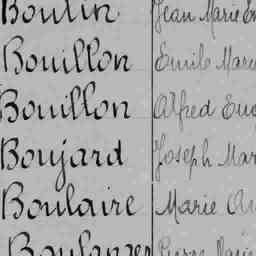 Boutin Jean Marie Em
Bouillon Emile Marc
Bouillon Alfred Eug
Boujard Joseph Mar
Boulaire Marie Au
Boulanger Pierre